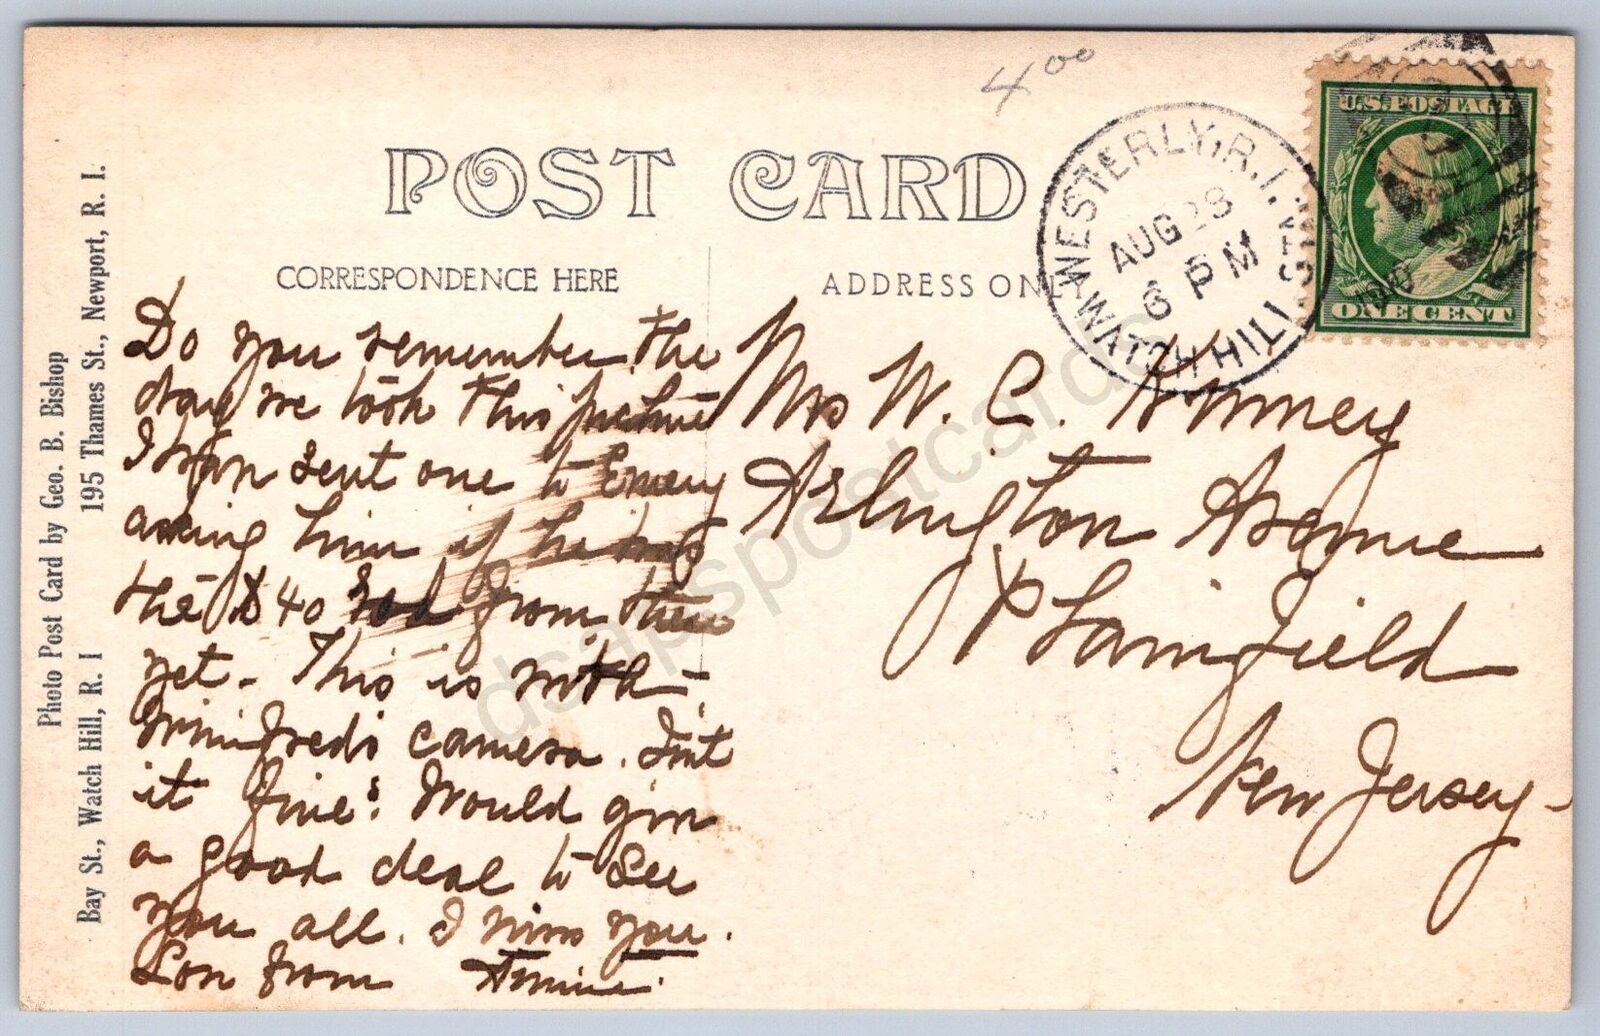 4.00
POST CARD
WESTERLY, R.I.
AUG 28
6 PM
1910
WATCH HILL STA.
U.S. POSTAGE
ONE CENT
CORRESPONDENCE HERE
ADDRESS ONLY
Photo Post Card by Geo. B. Bishop
Bay St., Watch Hill, R. I 195 Thames St., Newport, R. I.
Do you remember the
day we took this picture
I sent one to Emery
asking him if he has
the $40 from there
yet - This is with
Winifred's camera. Isn't
it fine? Would give
a good deal to see
you all. I miss you.
Love from
Mrs W. C. Kinney
Arlington Avenue
Plainfield
New Jersey
dsapspostcards